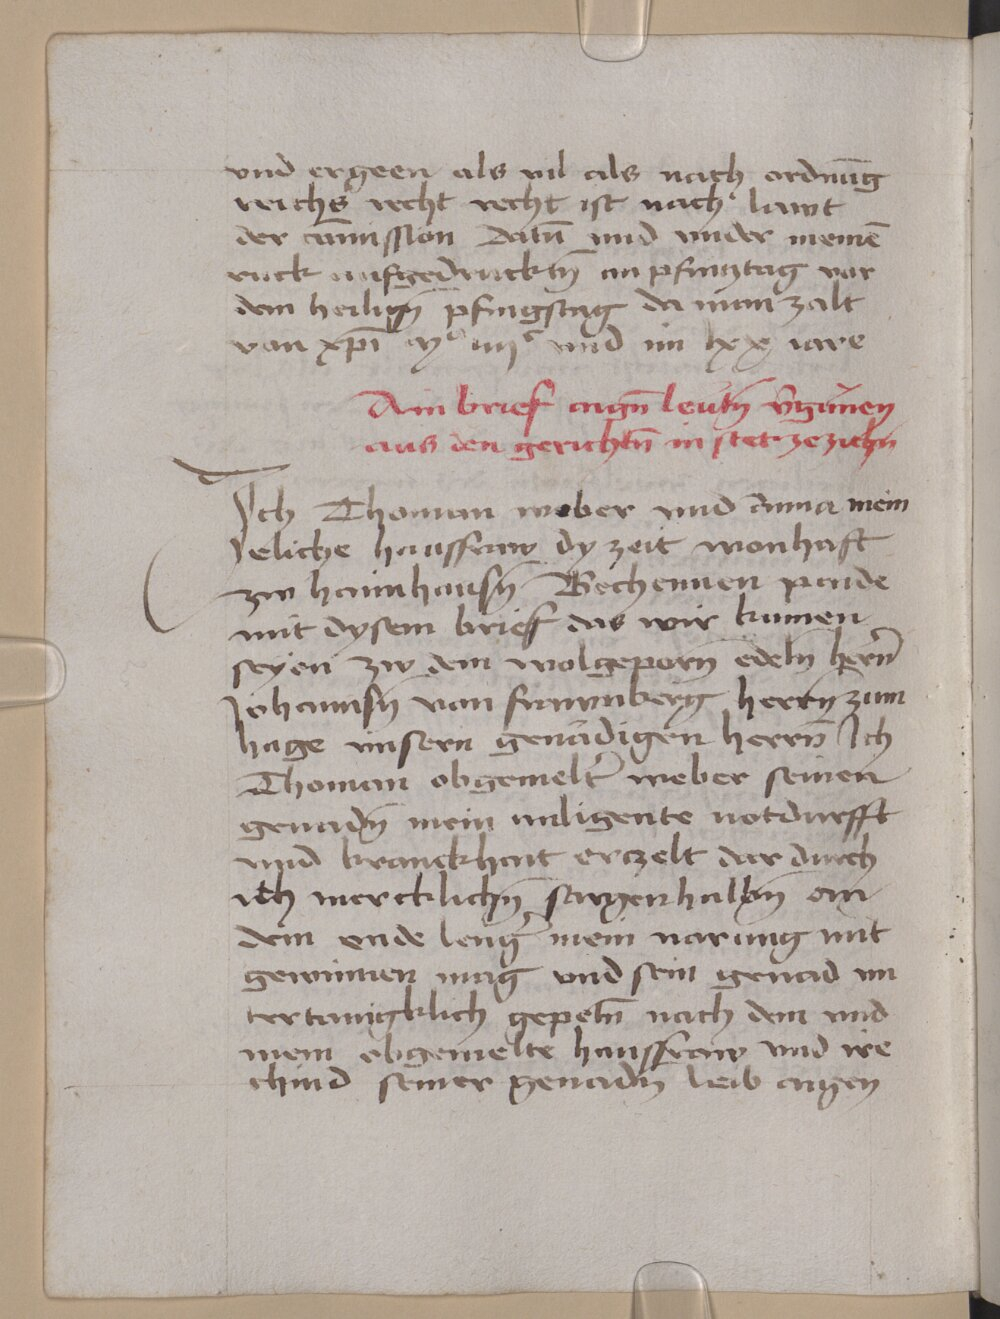 vnd ergeen als vil als nach ordnūg
reichs recht recht ist nach lawt
der cōmission Datū vnd vnder meinē
ruck aufgedrucktn̄ am pfintztag vor
dem heilign̄ pfingstag da man zalt
von xp̄i mᵒ iiijᶜ vnd im lxx iare
Ain brief aign̄ leutn̄ v̄gūnen
aus den gerichtn̄ in stet zeziehn̄
Ich Thoman weber vnd anna mein
eliche hausfraw dy zeit wonhaft
zw haimhausn̄ Bechennen paide
mit dysem brief das wir kumen
seyen zw dem wolgeporn̄ edeln hern̄
Johannsn̄ von frawnberg herrn̄ zum
hage vnsern genädigen herrn̄ Ich
Thoman obgemelt' weber seinen
genadn̄ mein anligente notdurfft
vnd kranckhait erczelt dar durch
ich mercklichn̄ sargenhalbn̄ an
dem ende leng' mein narung nit
gewinnen mag vnd sein genad vn
tertanigklich gepetn̄ nach dem vnd
mein obgemelte hausfraw vnd ire
chind seiner genadn̄ leib aigen